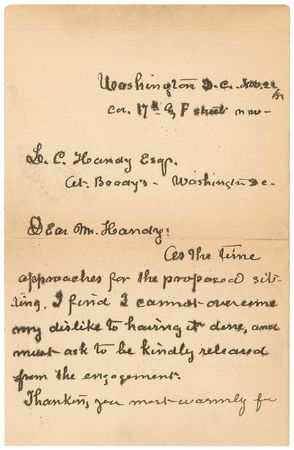 Washington D.C. Nov. 22
cor. 17th & F street nw-
L. C. Handy Esq.
At. Brady's - Washington Dc-
Dear Mr. Handy:
As the time
approaches for the proposed sit-
ting. I find I cannot overcome
my dislike to having it done, and
must ask to be kindly released
from the engagement.
Thanking you most warmly for